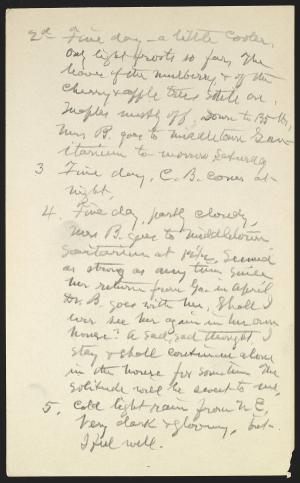 2d Fine day - a little cooler,
only light frosts so far. The
leaves of the mulberry, & of the
cherry & apple trees still on.
Maples mostly off. Down to
Mrs B. goes to Middletown San-
itarium to-morrow Saturday
3 Fine day. C. B. comes at
night.
4. Fine day, partly cloudy,
Mrs B. goes to Middletown
Sanitarium at Seemed
as strong as any time since
her return from Ga. in April
Dr. B. goes with her. Shall I
ever see her again in her own
house? A sad, sad thought. I
stay & shall continue alone
in the house for sometime. The
solitude will be sweet to me.
5. Cold light rain from N.E.
Very dark & gloomy, but
I feel well.